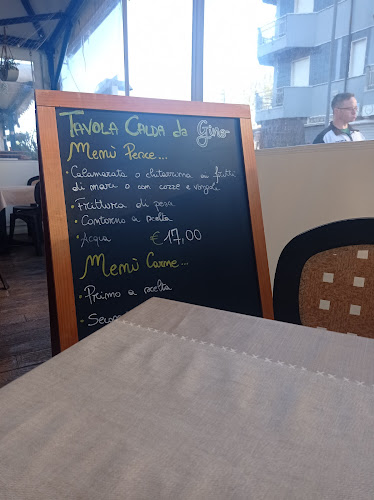 TAVOLA CALDA da Gino
Menù Pesce...
• Calamarata o chitarrina ai frutti
di mare o con cozze e vongole
• Frittura di pesce
• Contorno a scelta
• Acqua €17,00
Menù Carne...
• Primo a scelta
• Seco